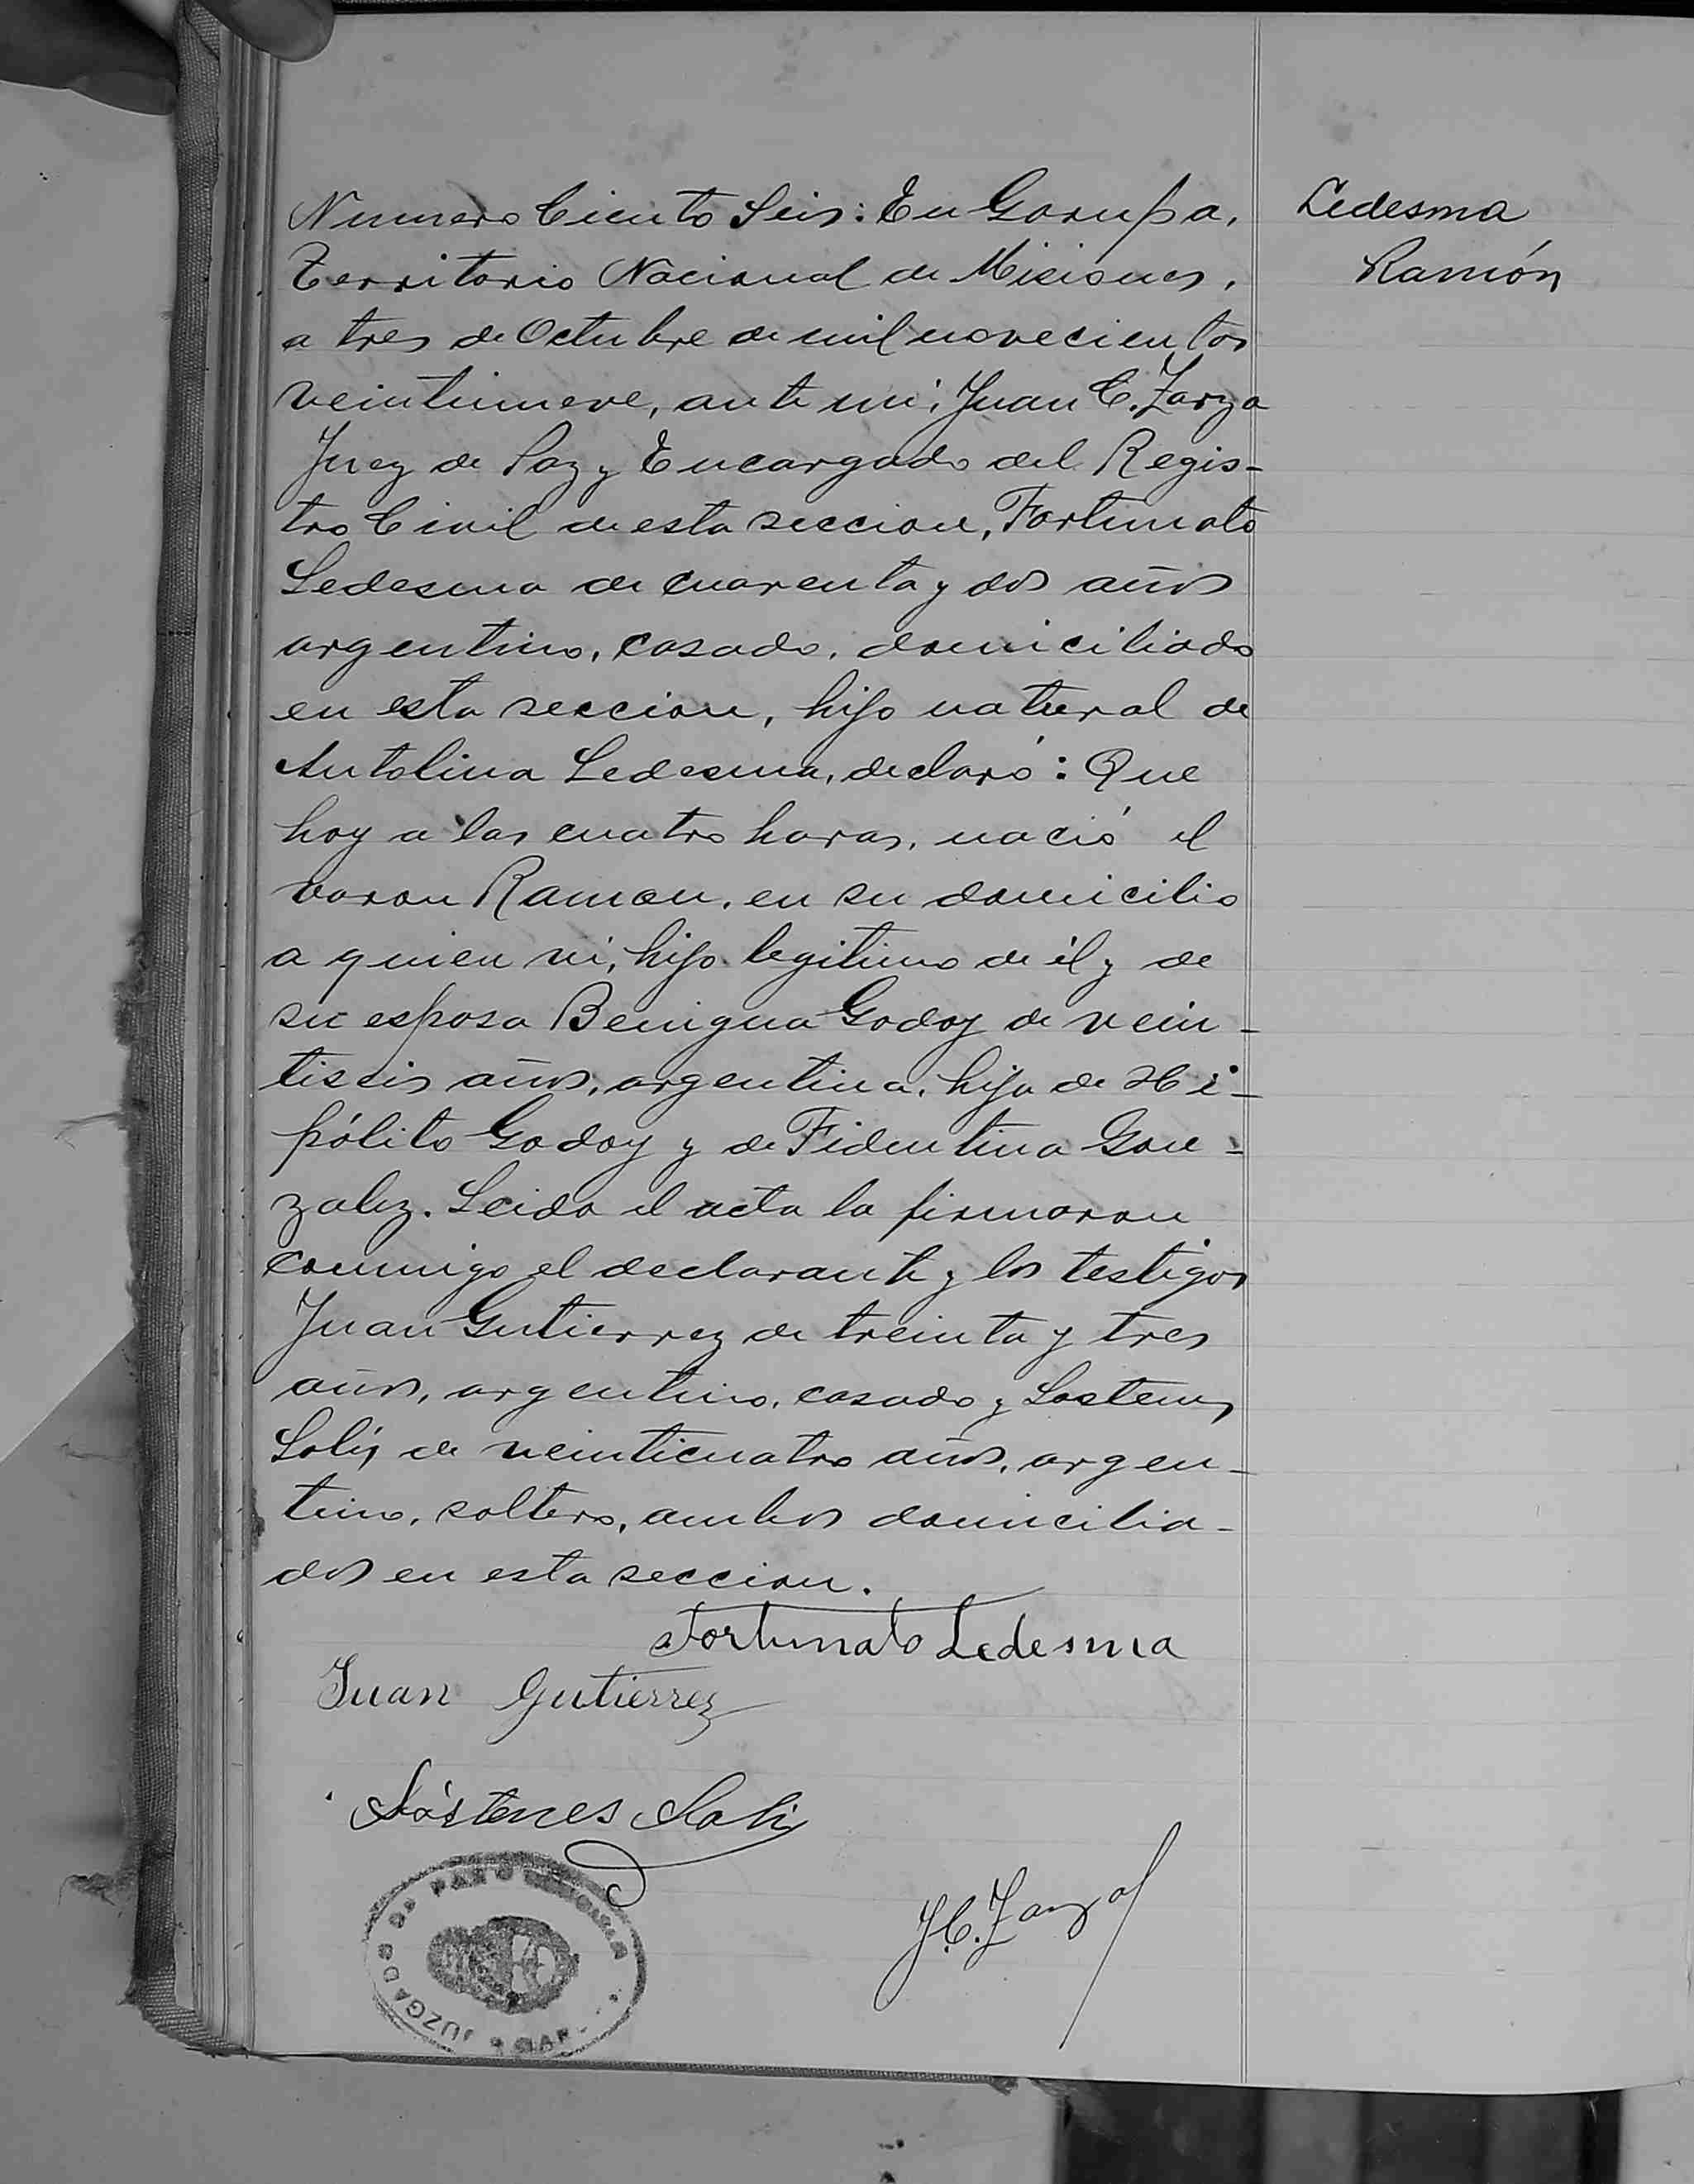 Numero Ciento Seis: En Garupa,
Territorio Nacional de Misiones,
a tres de Octubre de mil novecientos
veintinueve, ante mi, Juan C. Zarza
Juez de Paz y Encargado del Regis-
tro Civil de esta seccion, Fortunato
Ledesma de cuarenta y dos años
argentino, casado, domiciliado
en esta seccion, hijo natural de
Antolina Ledesma, declaró: Que
hoy a las cuatro horas, nació el
varon Ramon, en su domicilio
a quien vi, hijo legitimo de él y de
su esposa Benigna Godoy de vein-
tiseis años, argentina, hija de Hi-
pólito Godoy y de Fidentina Gon-
zalez. Leida el acta la firmaron
conmigo el declarante y los testigos
Juan Gutierrez de treinta y tres
años, argentino, casado y Sostenes
Solis de veinticuatro años, argen-
tino, soltero, ambos domicilia-
dos en esta seccion.
Fortunato Ledesma
Juan Gutierrez
Sóstenes Solis
J.C. Zarza
JUZGADO DE PAZ
Ledesma
Ramón